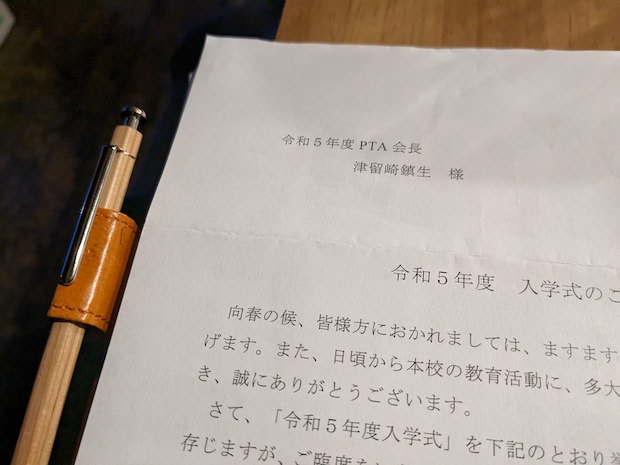 令和５年度 PTA 会長
津留崎鎮生　様
令和５年度　入学式のご
向春の候、皆様方におかれましては、ますます
げます。また、日頃から本校の教育活動に、多大
き、誠にありがとうございます。
さて、「令和５年度入学式」を下記のとおり挙
存じますが、ご臨席